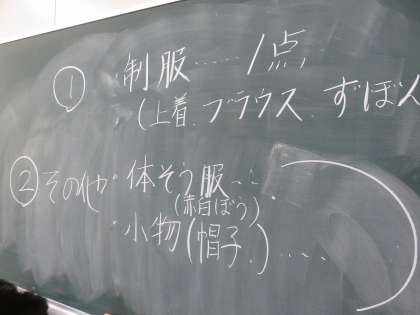 ① 制服……1点
(上着、ブラウス、ずぼん
② その他 体そう服…
(赤白ぼう)
小物(帽子、)….